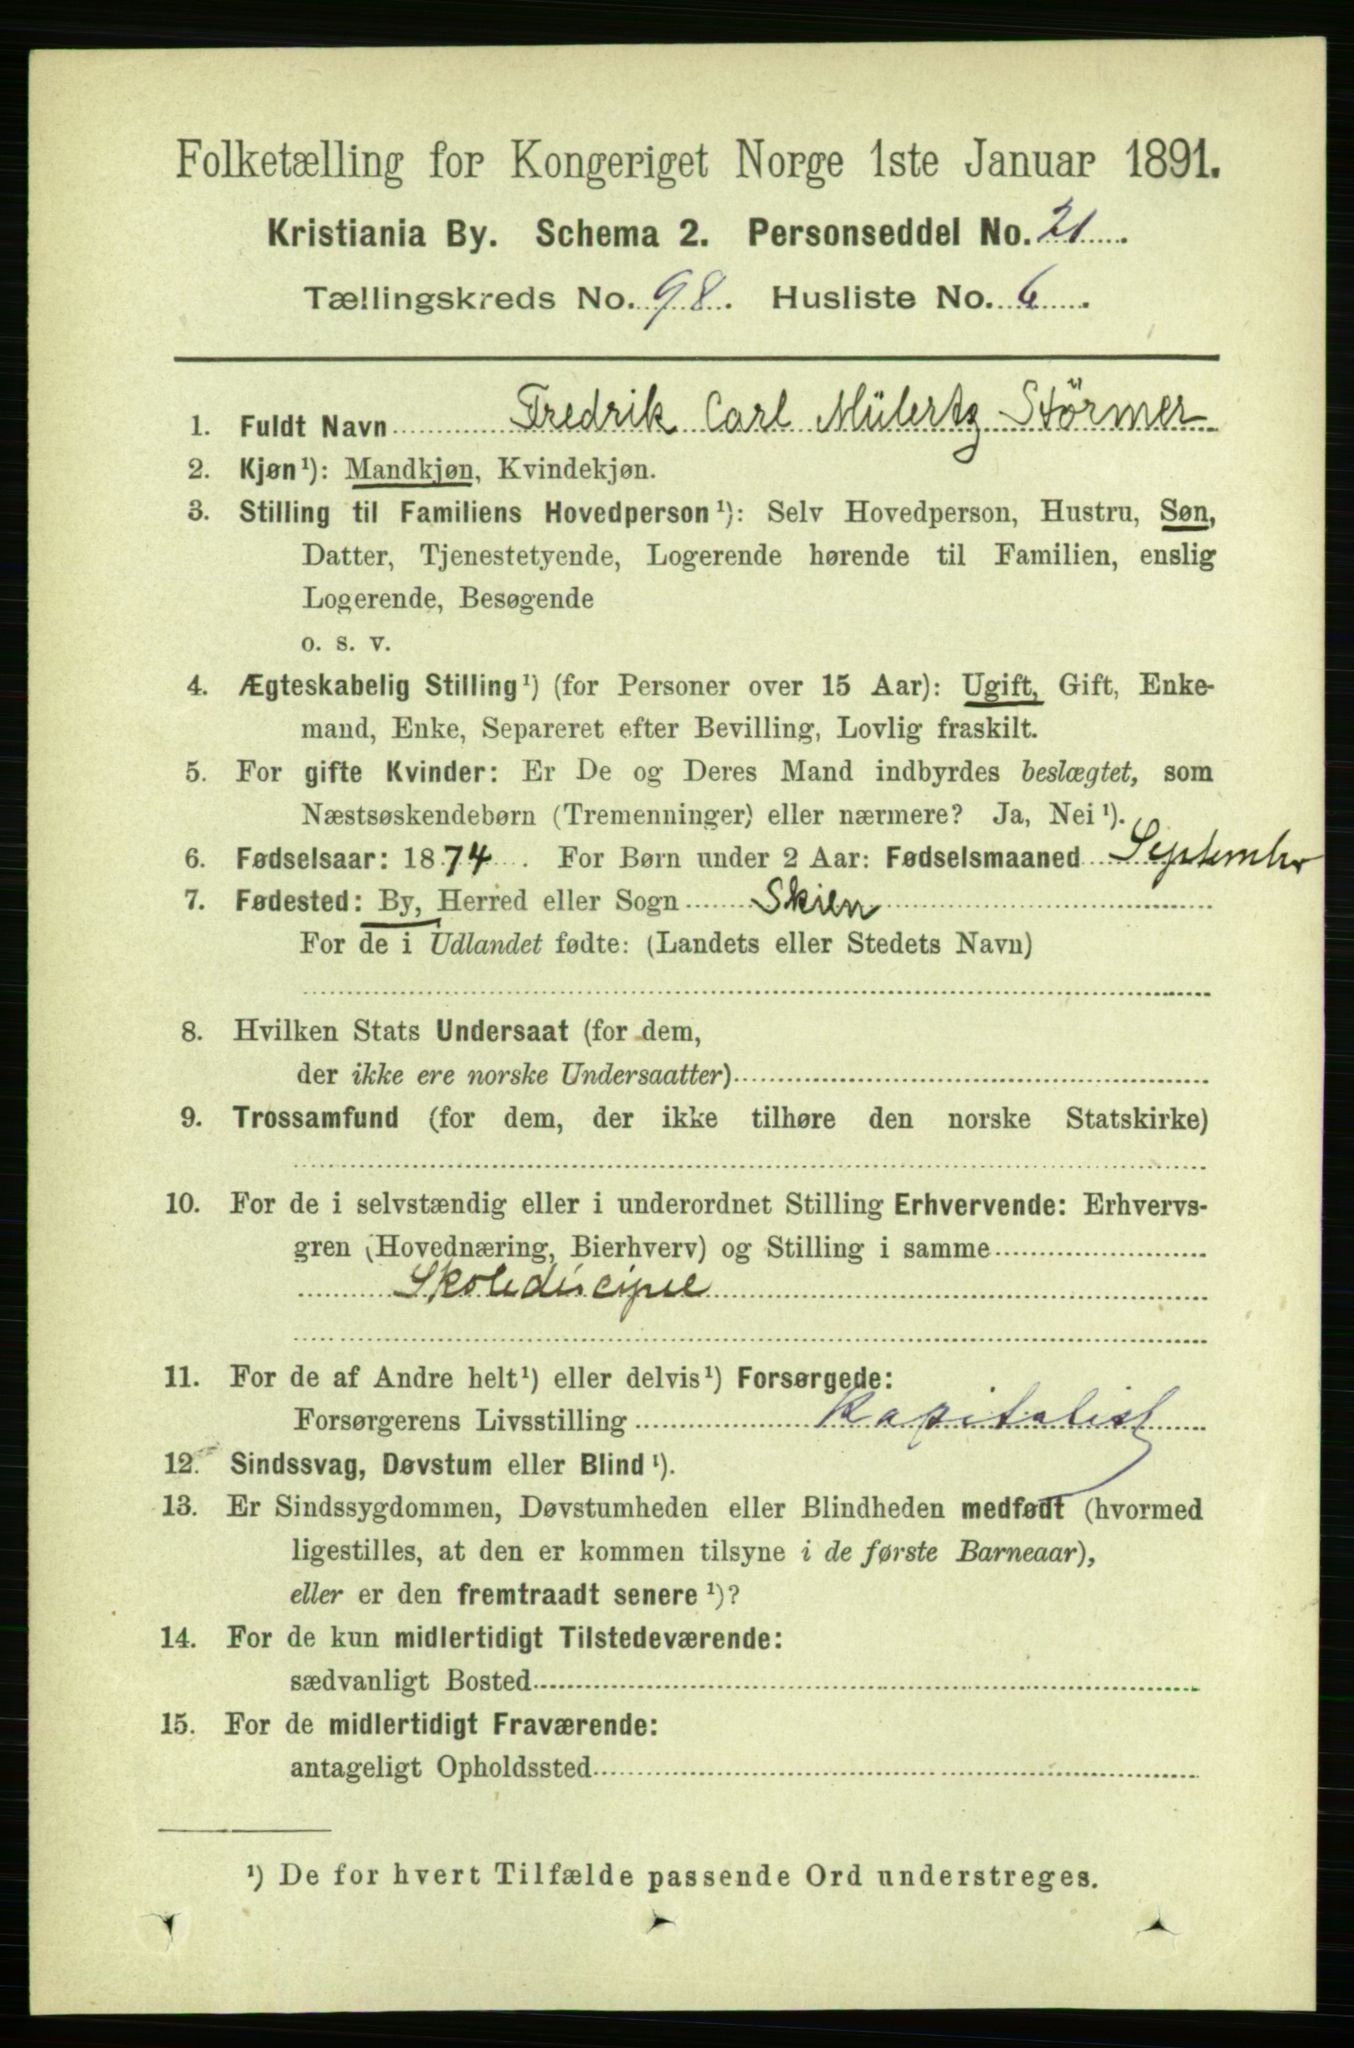 Folketælling for Kongeriget Norge 1ste Januar 1891.
Kristiania By. Schema 2. Personseddel No. 21.
Tællingskreds No. 98. Husliste No. 6.
1. Fuldt Navn Fredrik Carl Mülertz Störmer
2. Kjøn¹): Mandkjøn, Kvindekjøn.
3. Stilling til Familiens Hovedperson¹): Selv Hovedperson, Hustru, Søn,
Datter, Tjenestetyende, Logerende hørende til Familien, enslig
Logerende, Besøgende
o. s. v.
4. Ægteskabelig Stilling¹) (for Personer over 15 Aar): Ugift, Gift, Enke-
mand, Enke, Separeret efter Bevilling, Lovlig fraskilt.
5. For gifte Kvinder: Er De og Deres Mand indbyrdes beslægtet, som
Næstsøskendebørn (Tremenninger) eller nærmere? Ja, Nei¹).
6. Fødselsaar: 1874. For Børn under 2 Aar: Fødselsmaaned September
7. Fødested: By, Herred eller Sogn Skien
For de i Udlandet fødte: (Landets eller Stedets Navn)
8. Hvilken Stats Undersaat (for dem,
der ikke ere norske Undersaatter)
9. Trossamfund (for dem, der ikke tilhøre den norske Statskirke)
10. For de i selvstændig eller i underordnet Stilling Erhvervende: Erhvervs-
gren (Hovednæring, Bierhverv) og Stilling i samme
Skoledisciple
11. For de af Andre helt¹) eller delvis¹) Forsørgede:
Forsørgerens Livsstilling Kapitalist
12. Sindssvag, Døvstum eller Blind¹).
13. Er Sindssygdommen, Døvstumheden eller Blindheden medfødt (hvormed
ligestilles, at den er kommen tilsyne i de første Barneaar),
eller er den fremtraadt senere¹)?
14. For de kun midlertidigt Tilstedeværende:
sædvanligt Bosted
15. For de midlertidigt Fraværende:
antageligt Opholdssted
¹) De for hvert Tilfælde passende Ord understreges.